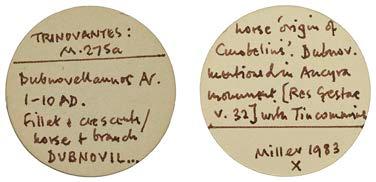 TRINOVANTES:
M.275a
Dubnovellaunos Ar.
1-10 AD.
Fillet & crescents/
horse & branch
DUBNOVIL...
horse 'origin of
Cunobelins'. Dubnov.
mentioned in Ancyra
monument [Res Gestae
V. 32] with Tincomarus
Miller 1983
X